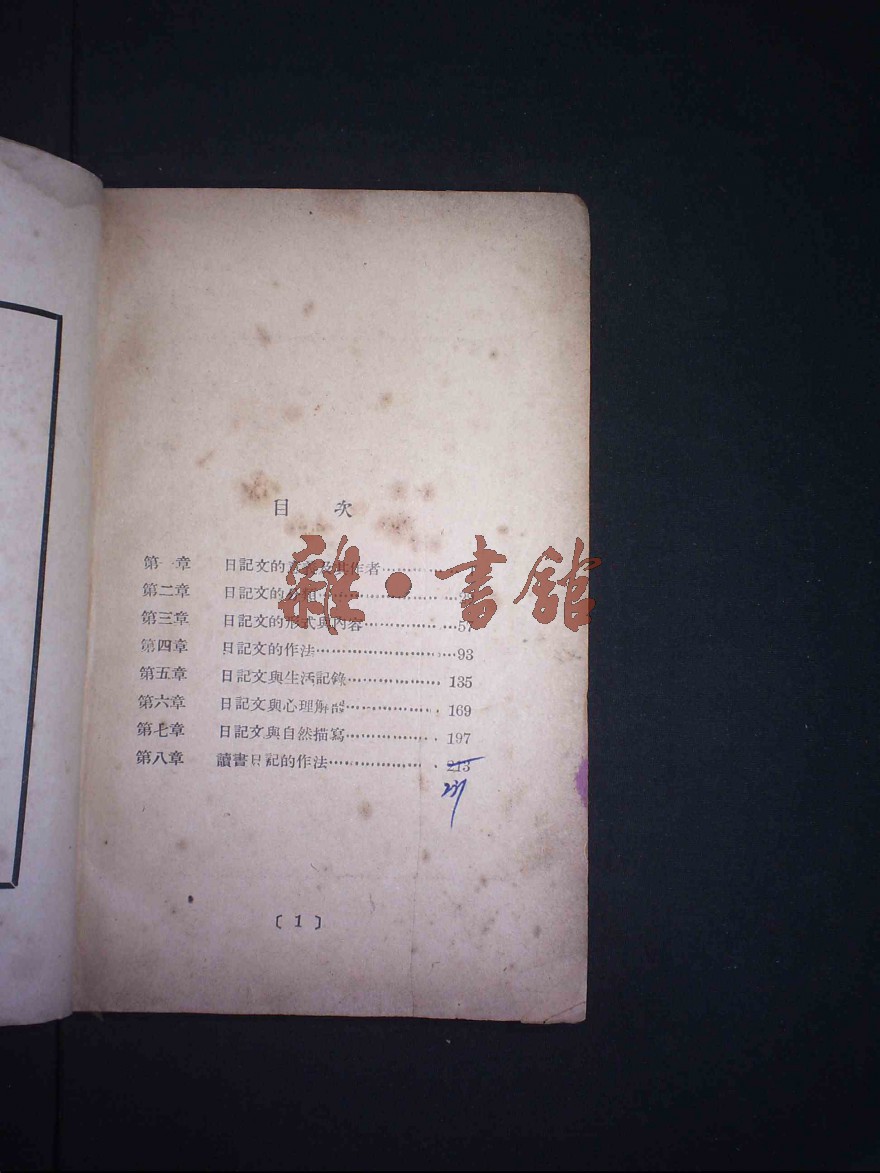 目　次
第一章　日記文的意義及其作者
第二章　日記文的分類
第三章　日記文的形式與內容……………57
第四章　日記文的作法……………93
第五章　日記文與生活記錄……………135
第六章　日記文與心理解剖……………169
第七章　日記文與自然描寫……………197
第八章　讀書日記的作法……………213
〔1〕
雜·書館